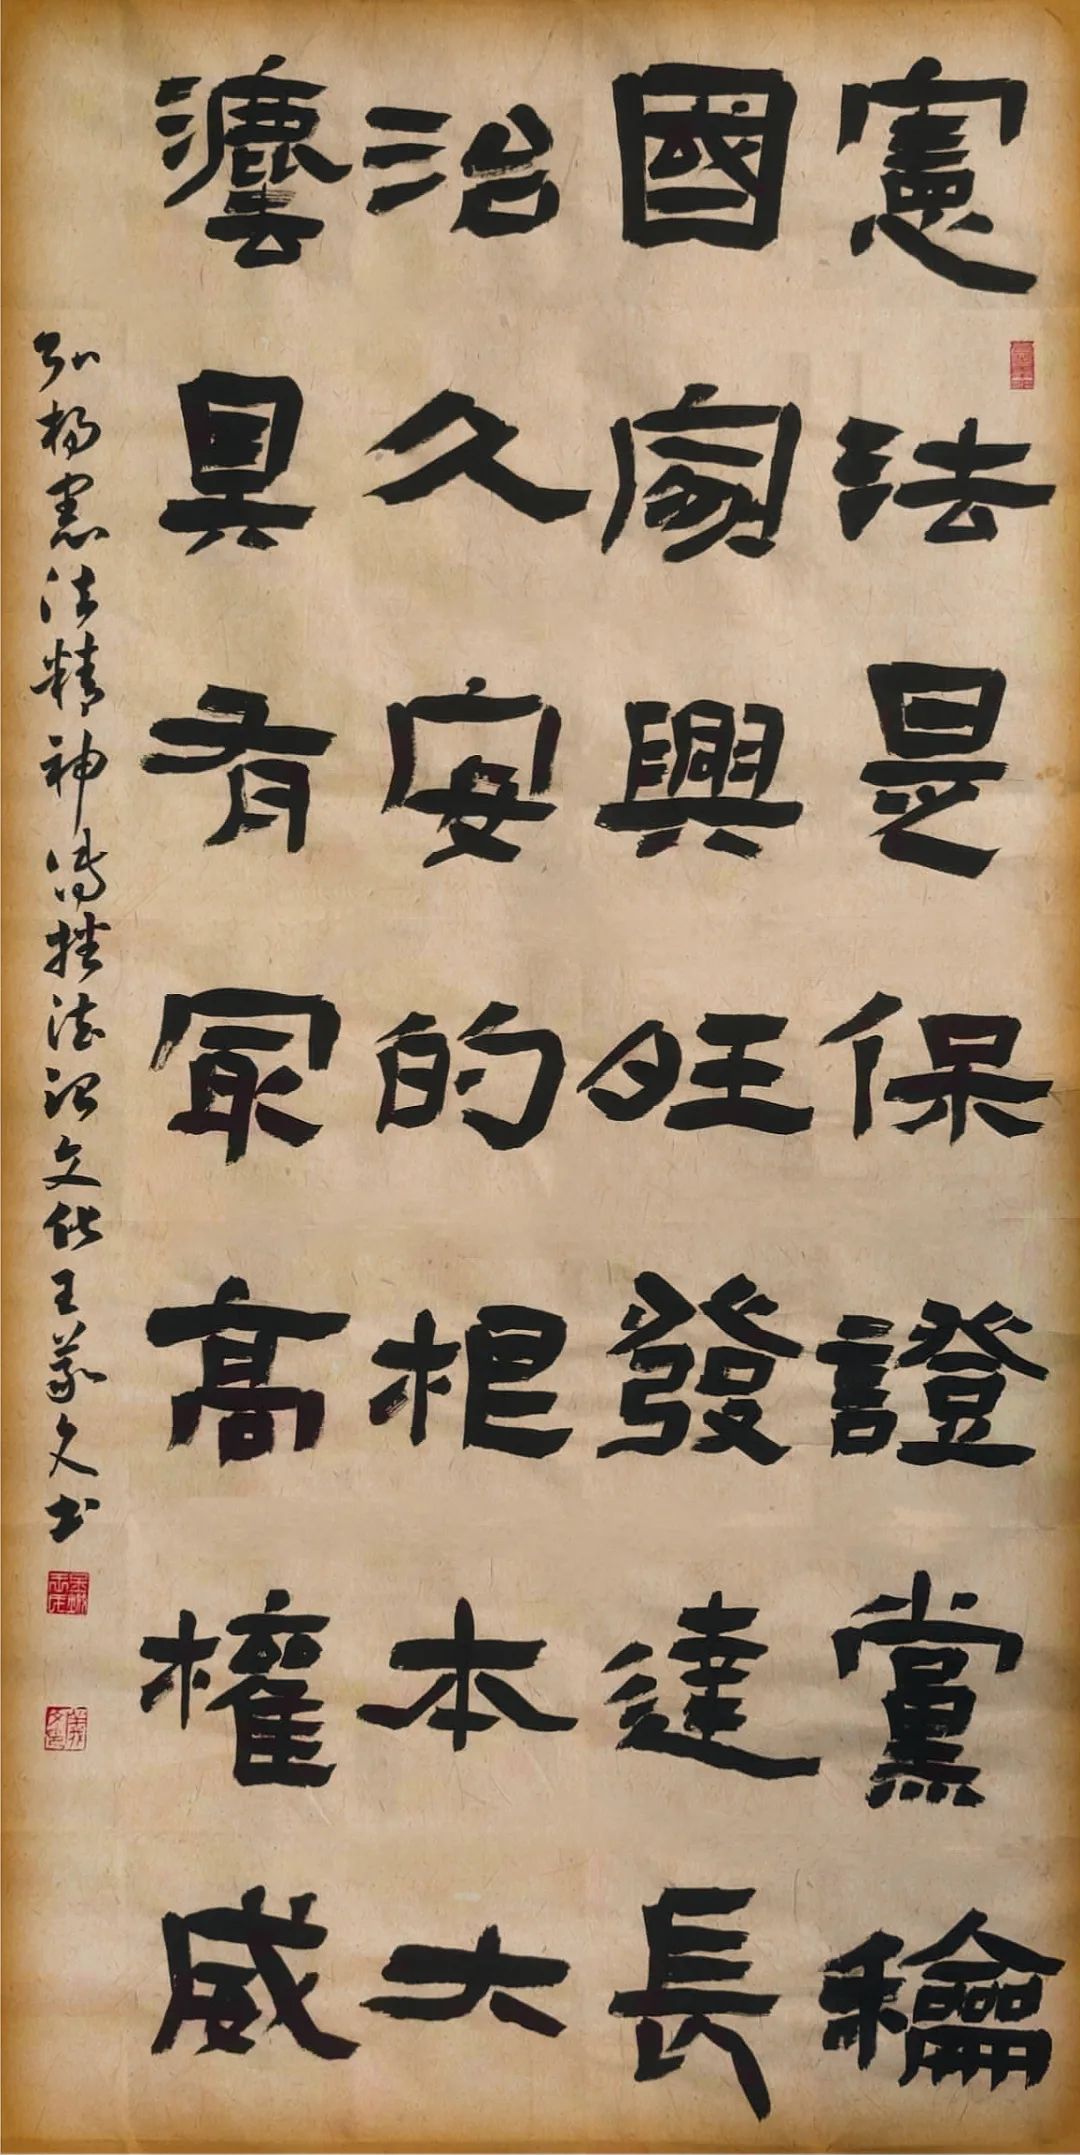 憲法是保證黨龢
國家興旺發達長
治久安的根本大
灋具有最高權威
弘揚憲法精神傳播法治文化王義文书